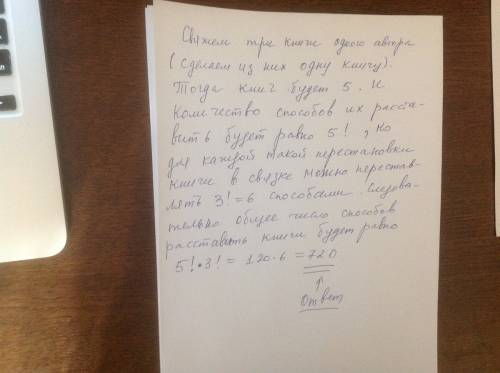 Свяжем три книги одного автора
(сделаем из них одну книгу).
Тогда книг будет 5. И
количество способов их расста-
вить будет равно 5!, но
для каждой такой перестановки
книги в связке можно перестав-
лять 3! = 6 способами. Следова-
тельно общее число способов
расставить книги будет равно
5! • 3! = 120 · 6 = 720
↑
Ответ